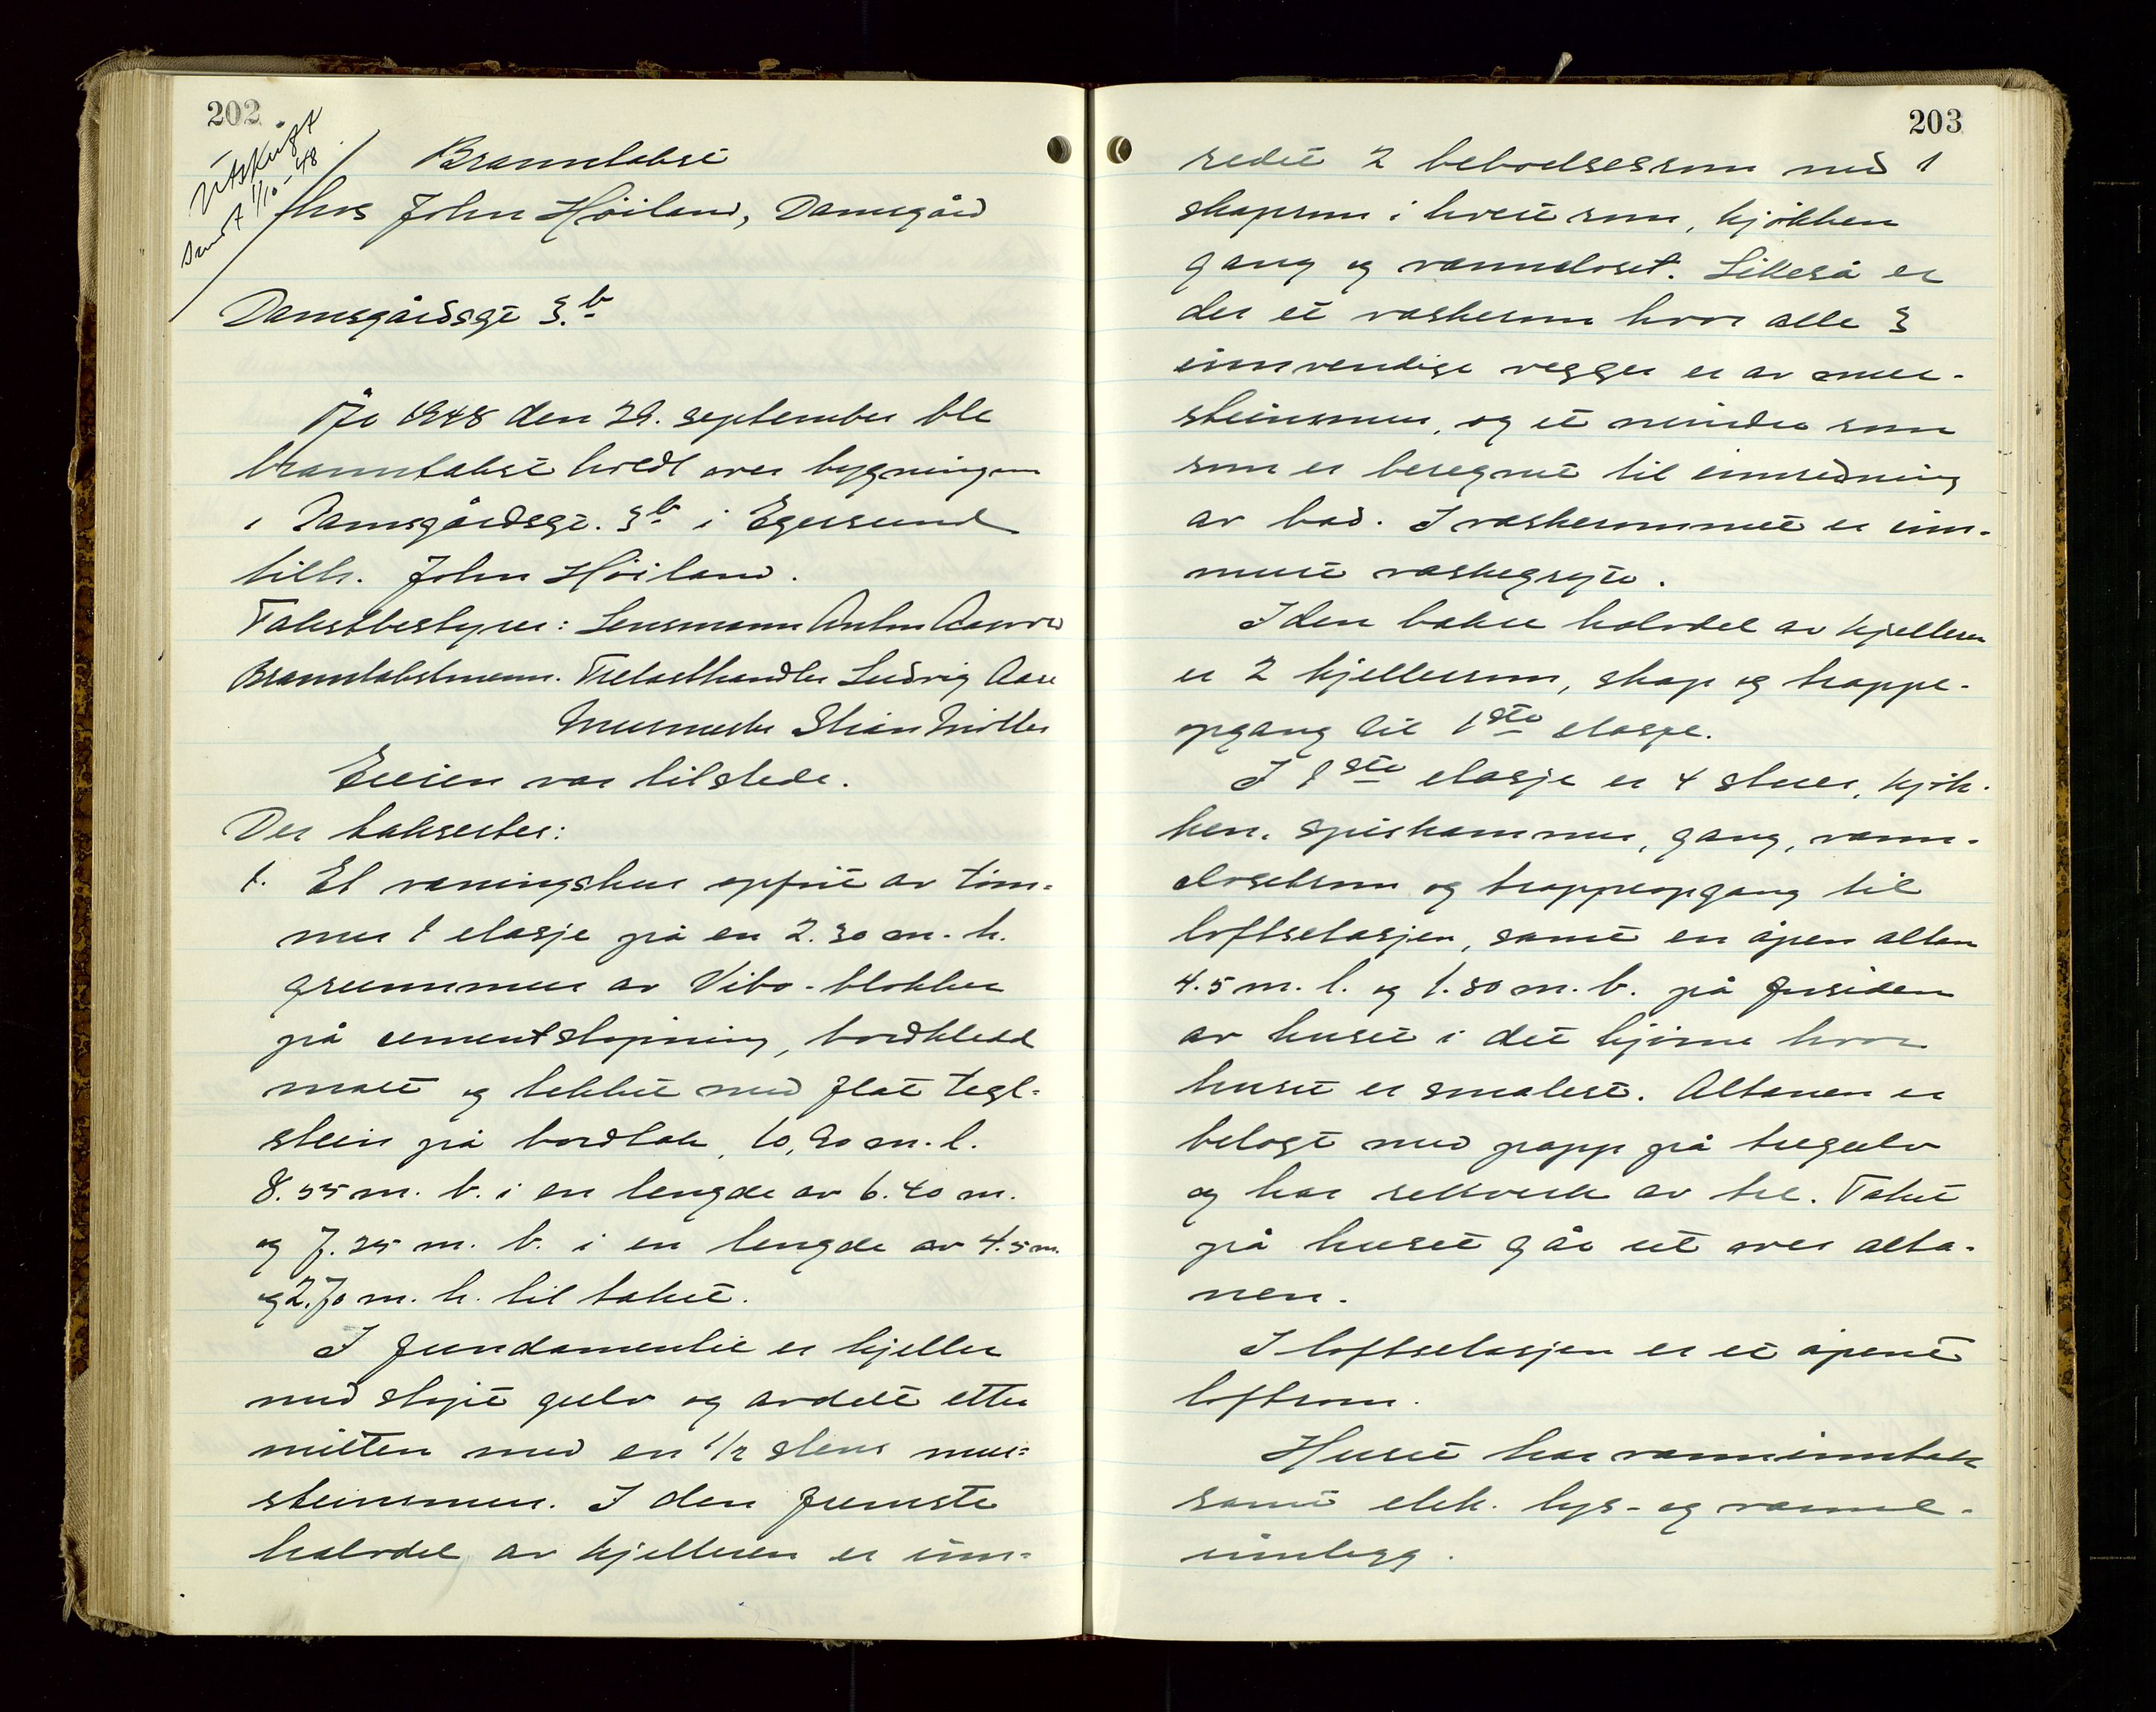 202
Utskrift
sendt 1/10-48
Branntakst
hos John Höiland, Damsgård
Damsgårdsgt 3.b
År 1948 den 29. september ble
branntakst holdt over bygningen
i Damsgårdsgt. 3b i Egersund
tilh. John Höiland.
Takstbestyrer: Lensmann Anton Aanæs
Branntakstmenn. Trelasthandler Ludvig Aase
Murmester Stian Möller
Eieren var tilstede.
Der takseres:
1. Et våningshus oppført av töm-
mer 1 etasje på en 2.30 m. h.
grunnmur av Vibo-blokker
på cementstöpning, bordkledd
malt og tekket med flat tegl-
stein på bordtak, 10,90 m. l.
8.55 m. b. i en lengde av 6.40 m.
og 7.25 m. b. i en lengde av 4.5 m.
og 2.70 m. h. til taket.
I fundamentet er kjeller
med stöpt gulv og avdelt etter
mitten med en 1/2 stens mur-
steinsmur. I den fremste
halvdel av kjelleren er inn-
203
redet 2 beboelsesrom med 1
skaprom i hvert rom, kjökken
gang og vanncloset. Likeså er
der et vaskerom hvor alle 3
innvendige vegger er av mur-
steinsmur, og et mindre rom
som er beregnet til innredning
av bad. I vaskerommet er inn-
muret vaskegryte.
I den bakre halvdel av kjelleren
er 2 kjellerrom, skap og trappe-
opgang til 1ste etasje.
I 1ste etasje er 4 stuer, kjök-
ken, spiskammer, gang, vann-
closetrom og trappeopgang til
loftsetasjen, samt en åpen altan
4.5 m. l. og 1.30 m. b. på forsiden
av huset i det hjörne hvor
huset er smalest. Altanen er
belagt med papp på tregulv
og har rekkverk av tre. Taket
på huset går ut over alta-
nen.
I loftsetasjen er et åpent
loftrom.
Huset har vanninntak
samt elek. lys- og varme-
innlegg.